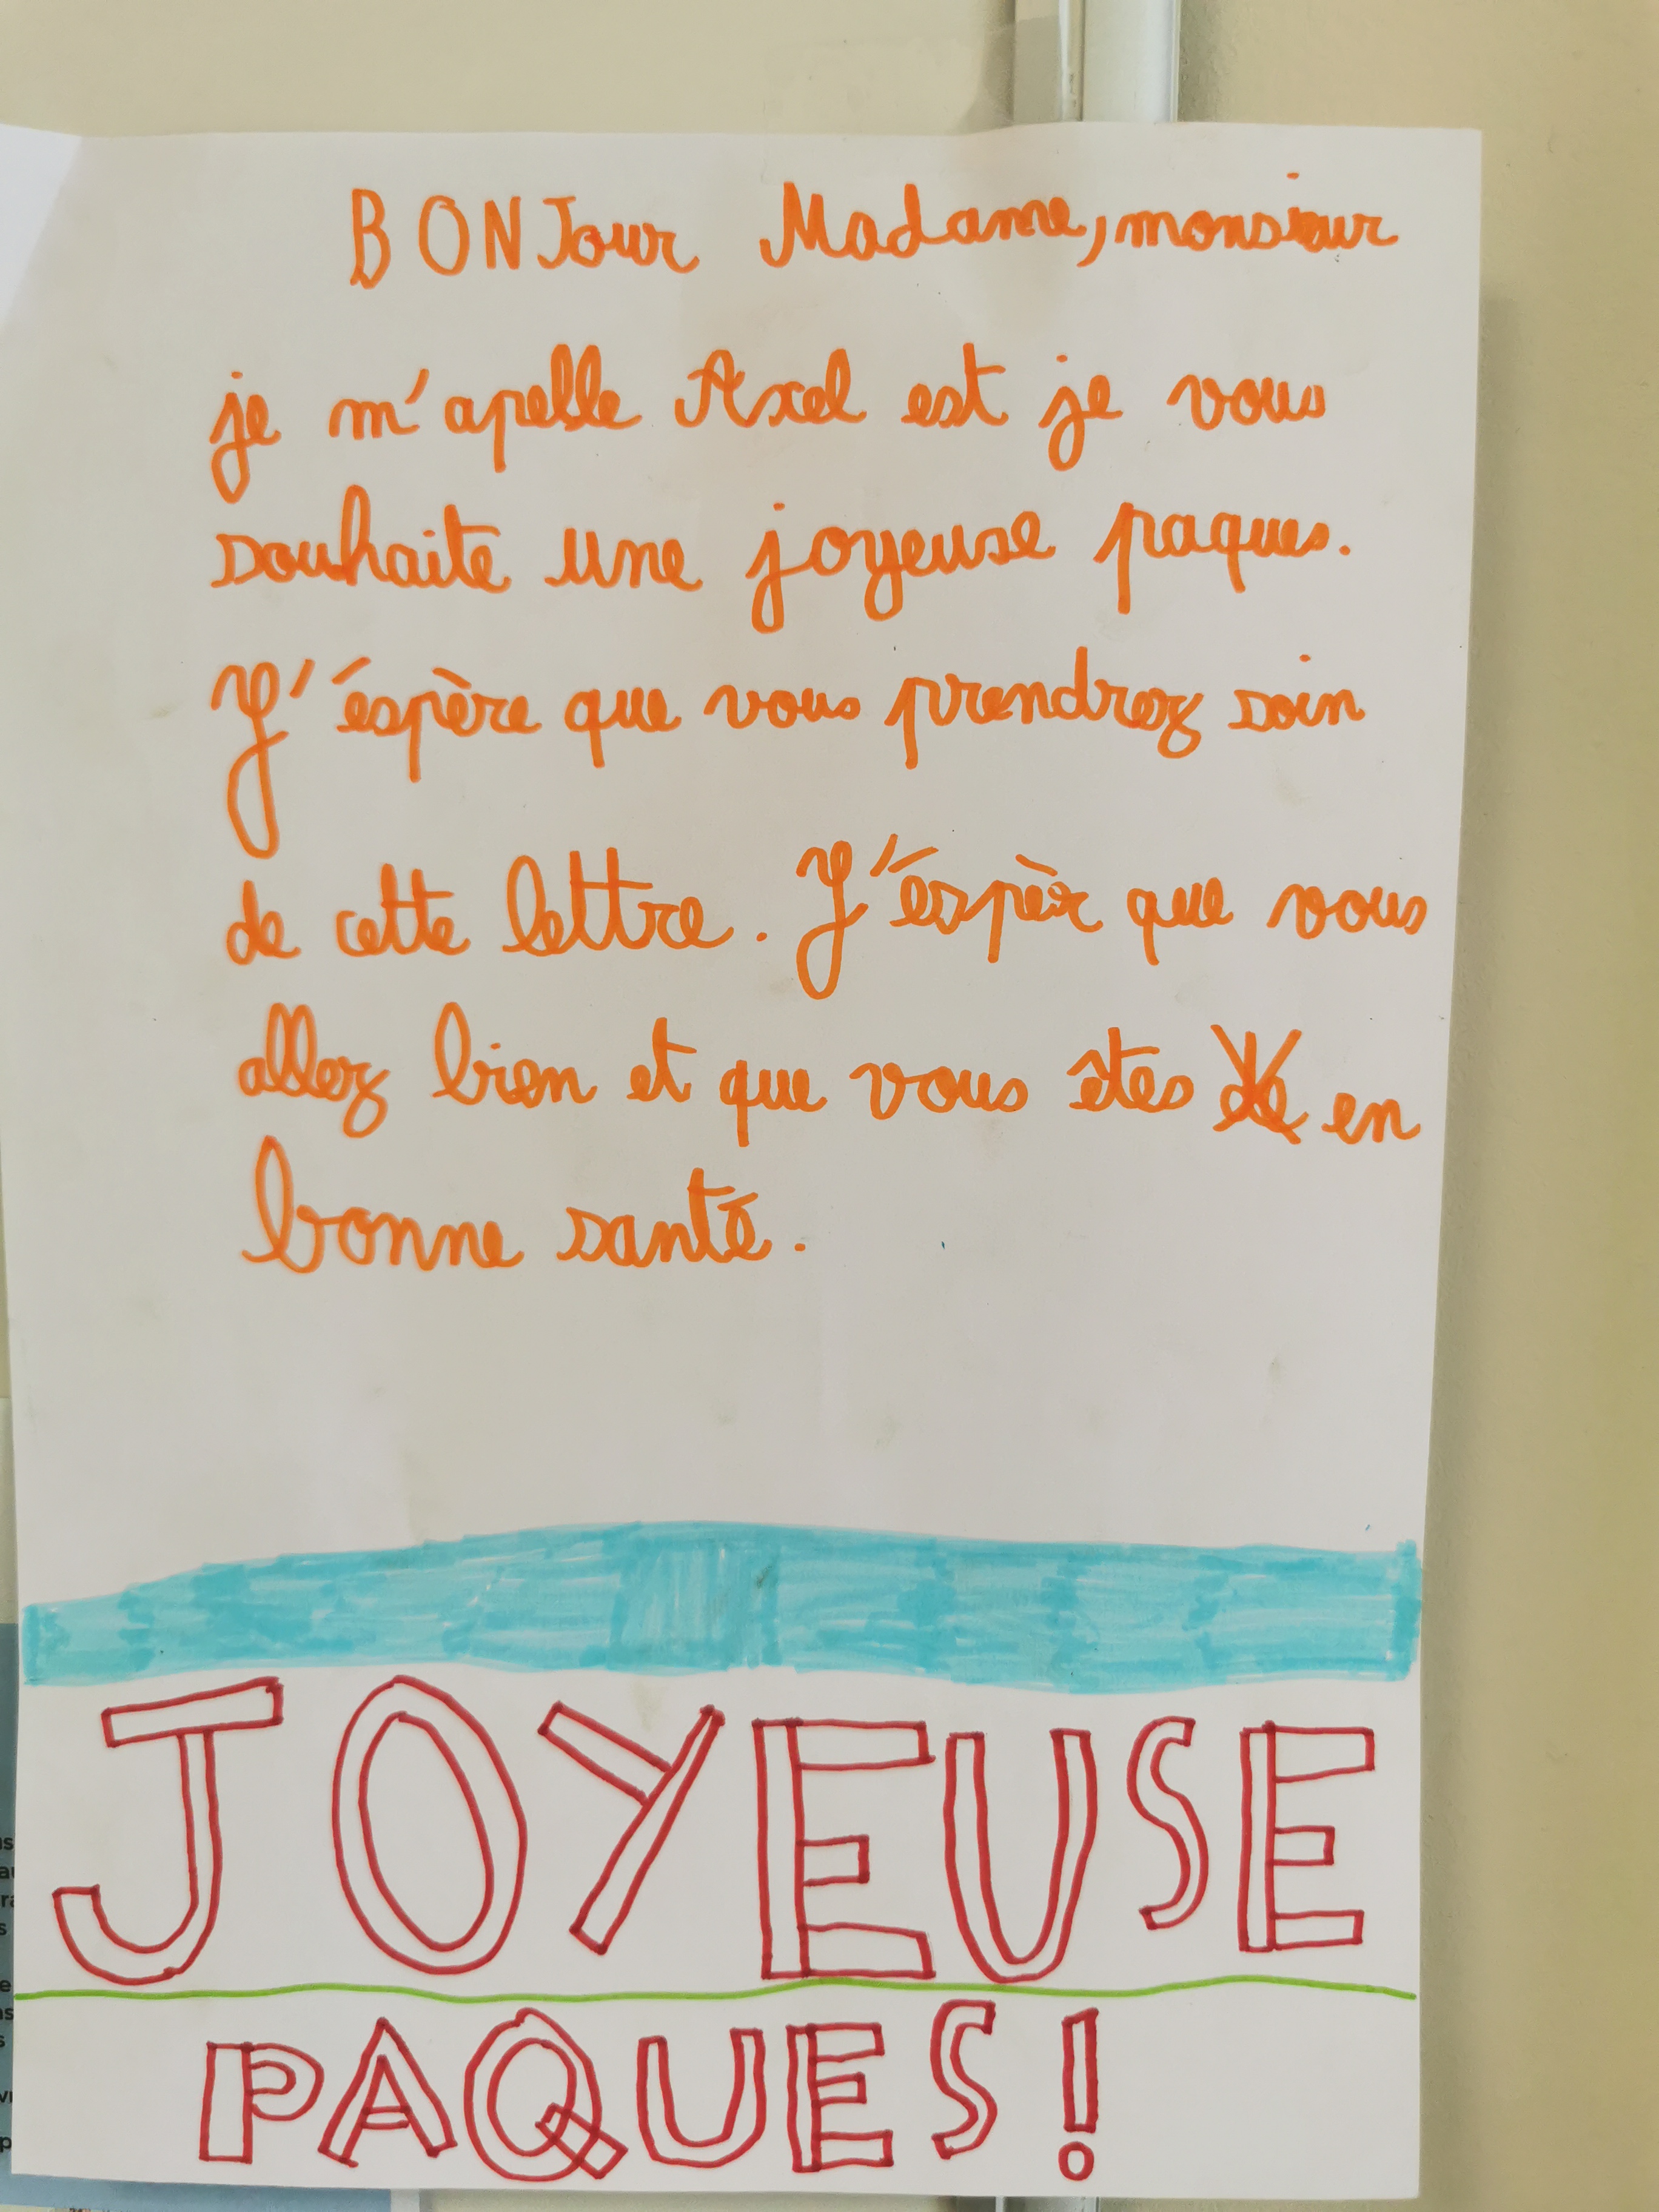 BONJour Madame, monsieur
je m'apelle Axel est je vous
souhaite une joyeuse paques.
J'éspère que vous prendrez soin
de cette lettre. J'éspèr que vous
allez bien et que vous êtes en
bonne santé.
JOYEUSE
PAQUES!